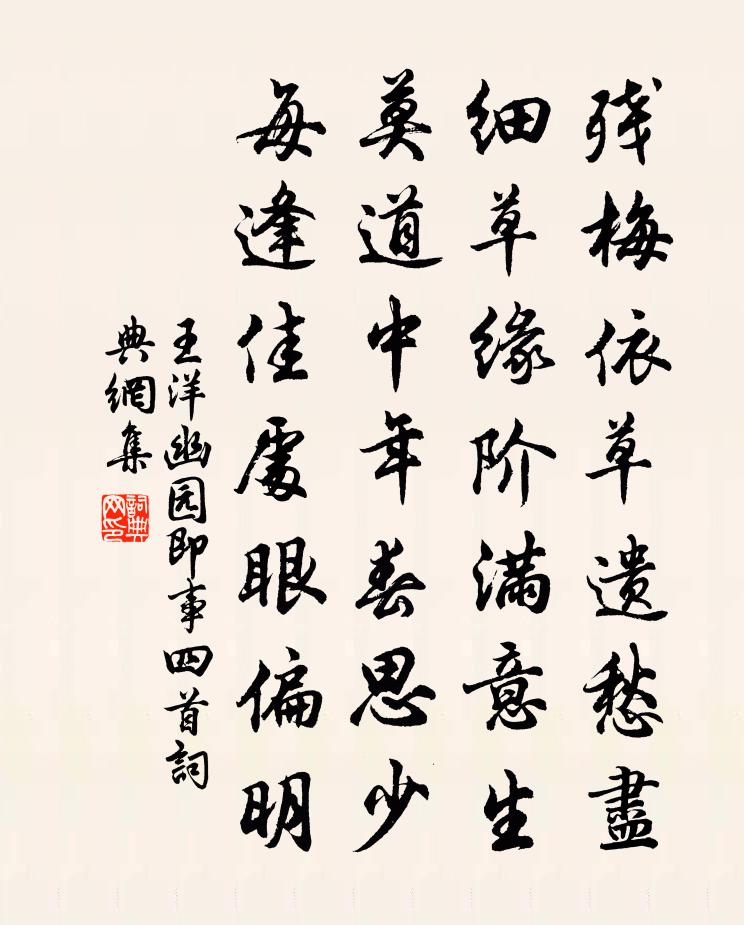 残梅依草遗愁盡
细草缘阶满意生
莫道中年春思少
每逢佳處眼偏明
王洋幽园即事四首詞
典網集
詞典
网印